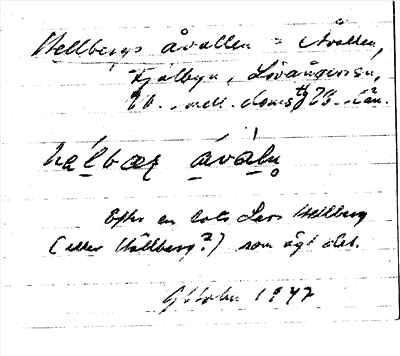 Hellbergs åvallen = Åvallen,
Kjälbyn, Lövångers sn,
Vb. mell. doms. Vb. län.
hälbær åvàln̥
Efter en Lars Hellberg
(eller Hällberg?) som ägt det.
Oktober 1947